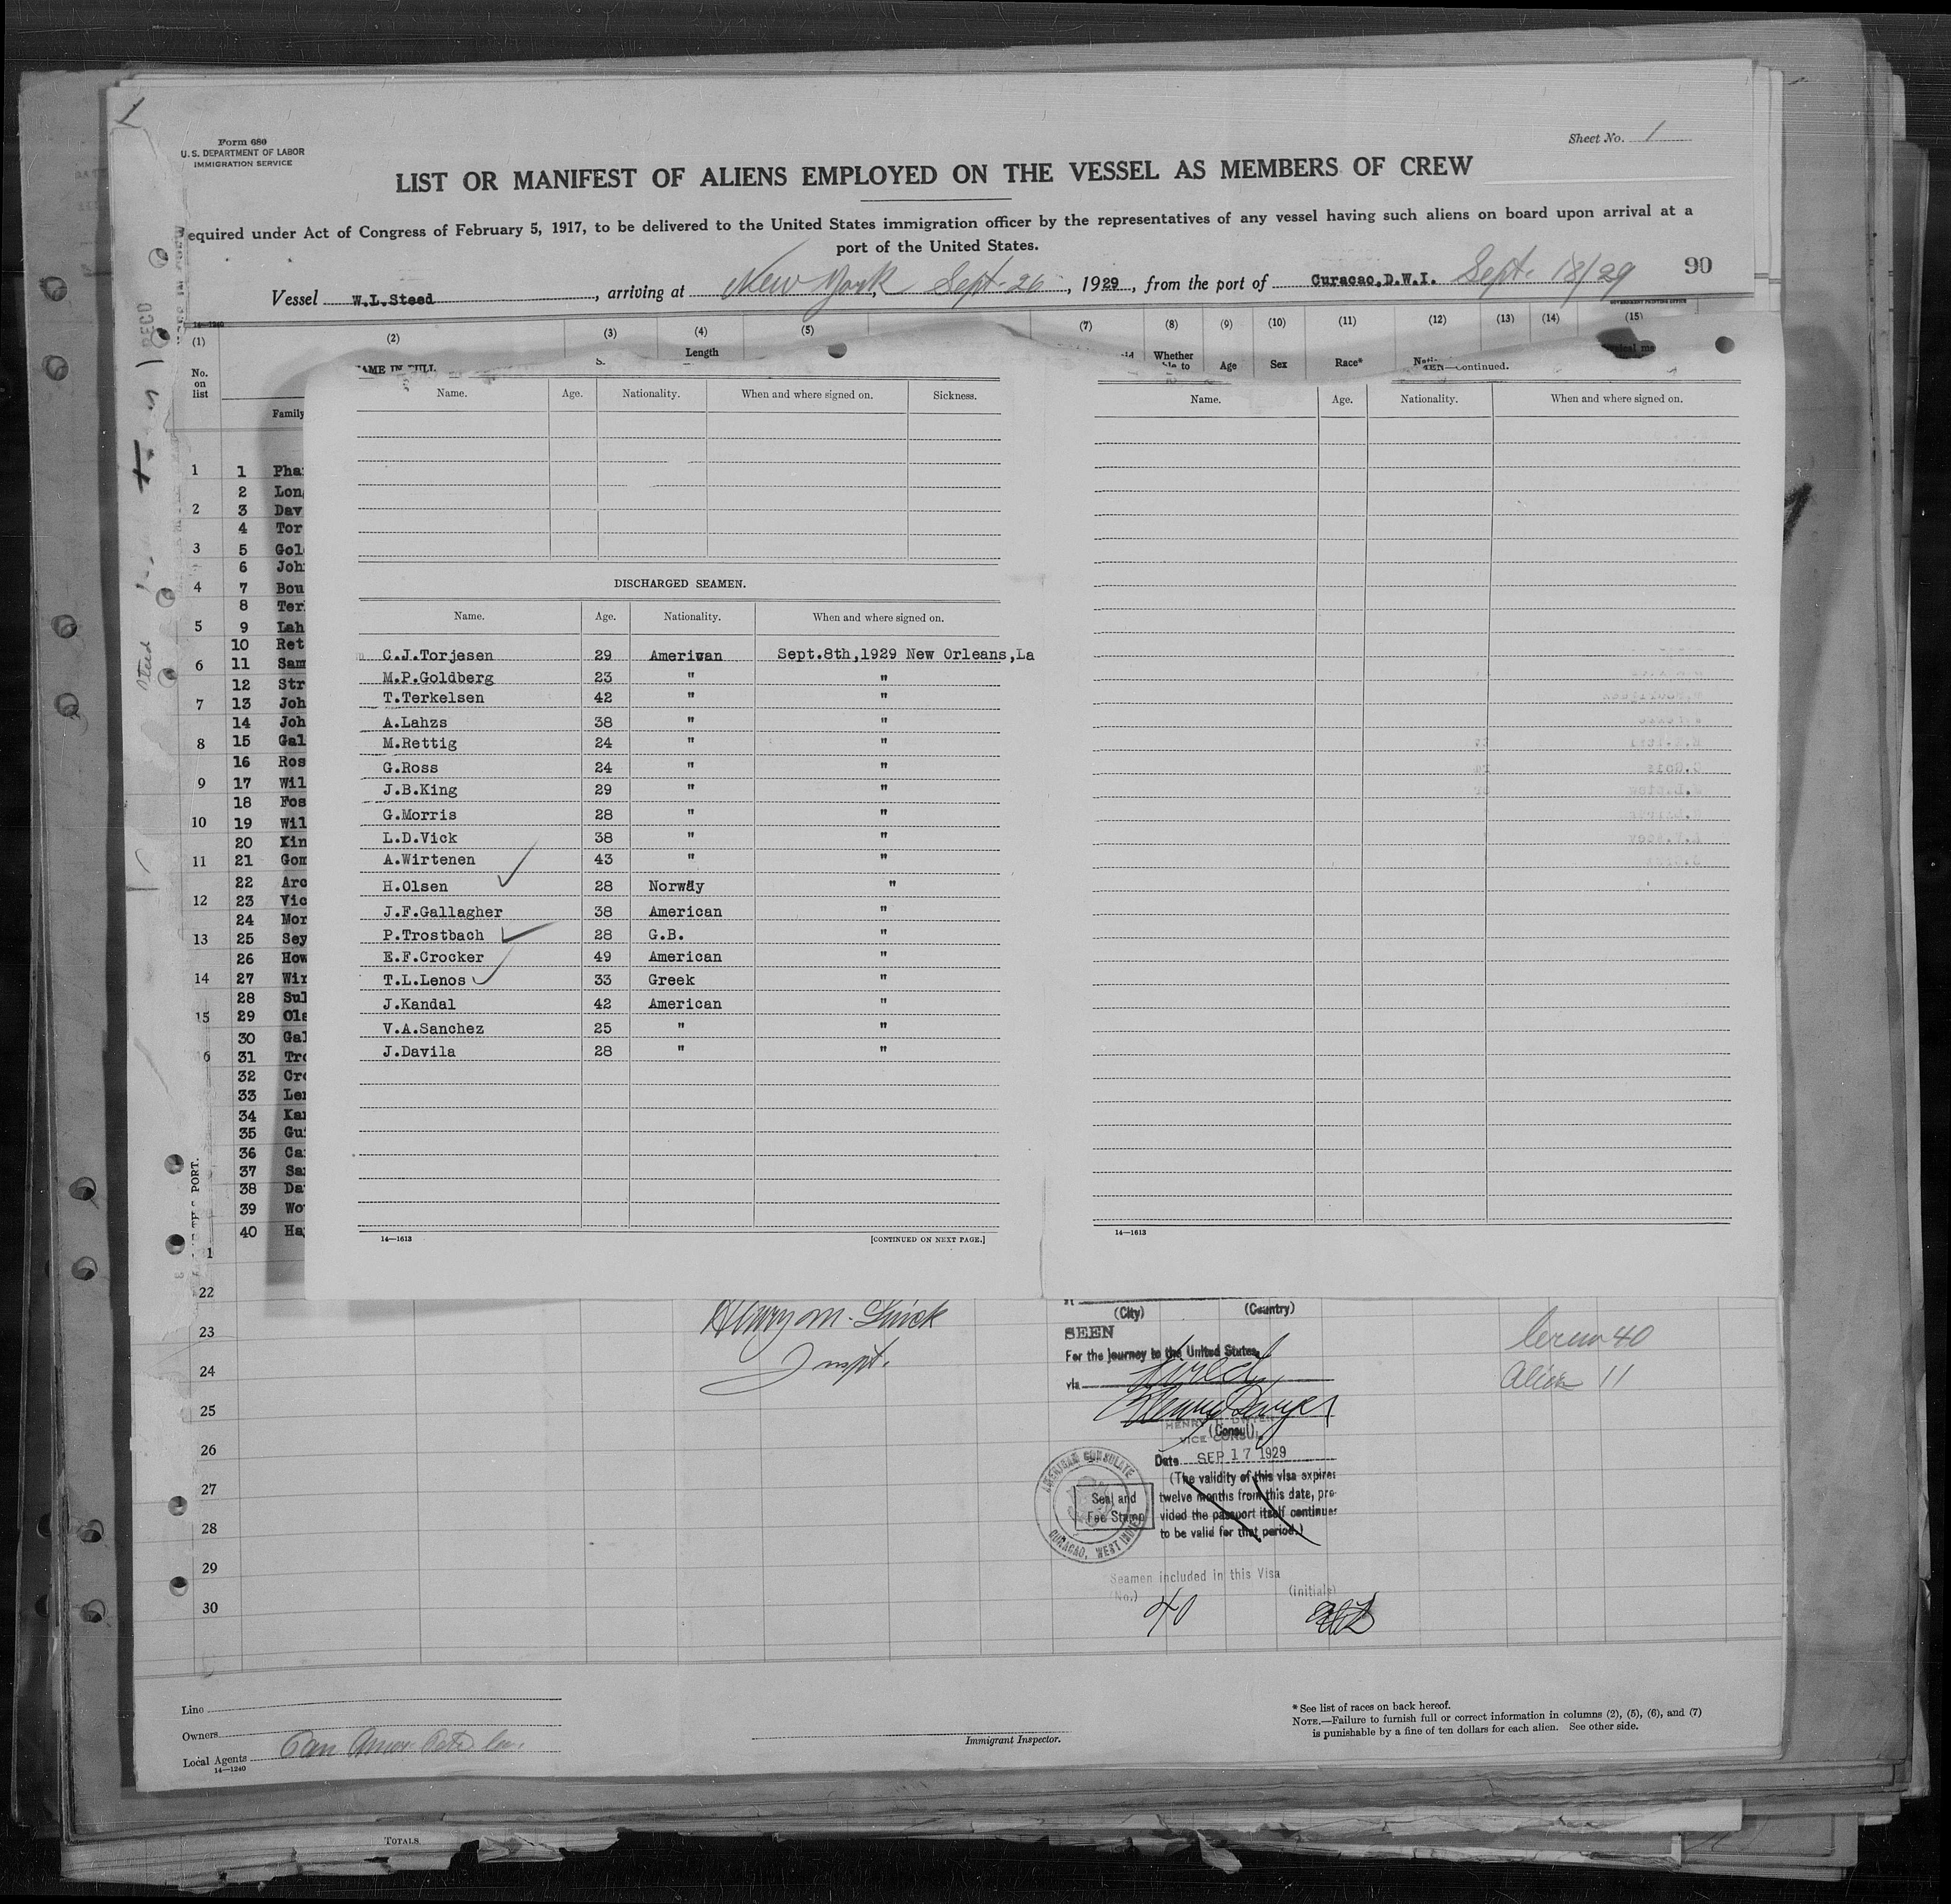 Form 680
U. S. DEPARTMENT OF LABOR
IMMIGRATION SERVICE
Sheet No. 1
LIST OR MANIFEST OF ALIENS EMPLOYED ON THE VESSEL AS MEMBERS OF CREW
equired under Act of Congress of February 5, 1917, to be delivered to the United States immigration officer by the representatives of any vessel having such aliens on board upon arrival at a
port of the United States.
Vessel W.L.Steed, arriving at New York, Sept. 26, 1929, from the port of Curacao,D.W.I. Sept. 18/29
90
14—1240
GOVERNMENT PRINTING OFFICE
(1) (2) (3) (4) (5) (7) (8) (9) (10) (11) (12) (13) (14) (15)
Length Whether
AME IN FULL S. to Age Sex Race*
No. on list
Family
MEN—Continued.
Name. Age. Nationality. When and where signed on. Sickness.
Name. Age. Nationality. When and where signed on.
DISCHARGED SEAMEN.
Name. Age. Nationality. When and where signed on.
C.J.Torjesen 29 Ameriwan Sept.8th,1929 New Orleans,La
M.P.Goldberg 23 " "
T.Terkelsen 42 " "
A.Lahzs 38 " "
M.Rettig 24 " "
G.Ross 24 " "
J.B.King 29 " "
G.Morris 28 " "
L.D.Vick 38 " "
A.Wirtenen 43 " "
H.Olsen 28 Norway "
J.F.Gallagher 38 American "
P.Trostbach 28 G.B. "
E.F.Crocker 49 American "
T.L.Lenos 33 Greek "
J.Kandal 42 American "
V.A.Sanchez 25 " "
J.Davila 28 " "
14—1613
[CONTINUED ON NEXT PAGE.]
14—1613
1 1 Pha
2 Lon
2 3 Dav
4 Tor
3 5 Gol
6 Joh
4 7 Bou
8 Ter
5 9 Lah
10 Ret
6 11 Sam
12 Str
7 13 Joh
14 Joh
8 15 Gal
16 Ros
9 17 Wil
18 Fos
10 19 Wil
20 Kin
11 21 Gom
22 Aro
12 23 Vic
24 Mor
13 25 Sey
26 How
14 27 Wir
28 Sul
15 29 Ols
30 Gal
6 31 Tro
32 Cro
33 Len
34 Kan
35 Gu
36 Ca
37 Sa
38 Da
39 Wo
40 Ha
1
22
23
24
25
26
27
28
29
30
PORT.
Inspt.
(City) (Country)
SEEN
For the journey to the United States,
via
HENRY DWYER
VICE CONSUL
(Consul)
Date SEP 17 1929
(The validity of this visa expires
twelve months from this date, pro-
vided the passport itself continues
to be valid for that period.)
AMERICAN CONSULATE
CURACAO, WEST INDIES
Seal and
Fee Stamp
Seamen included in this Visa
(No.) (Initials)
40
Crew 40
Alien 11
Line
Owners
Local Agents
14—1240
Immigrant Inspector.
* See list of races on back hereof.
NOTE.—Failure to furnish full or correct information in columns (2), (5), (6), and (7)
is punishable by a fine of ten dollars for each alien. See other side.
TOTALS